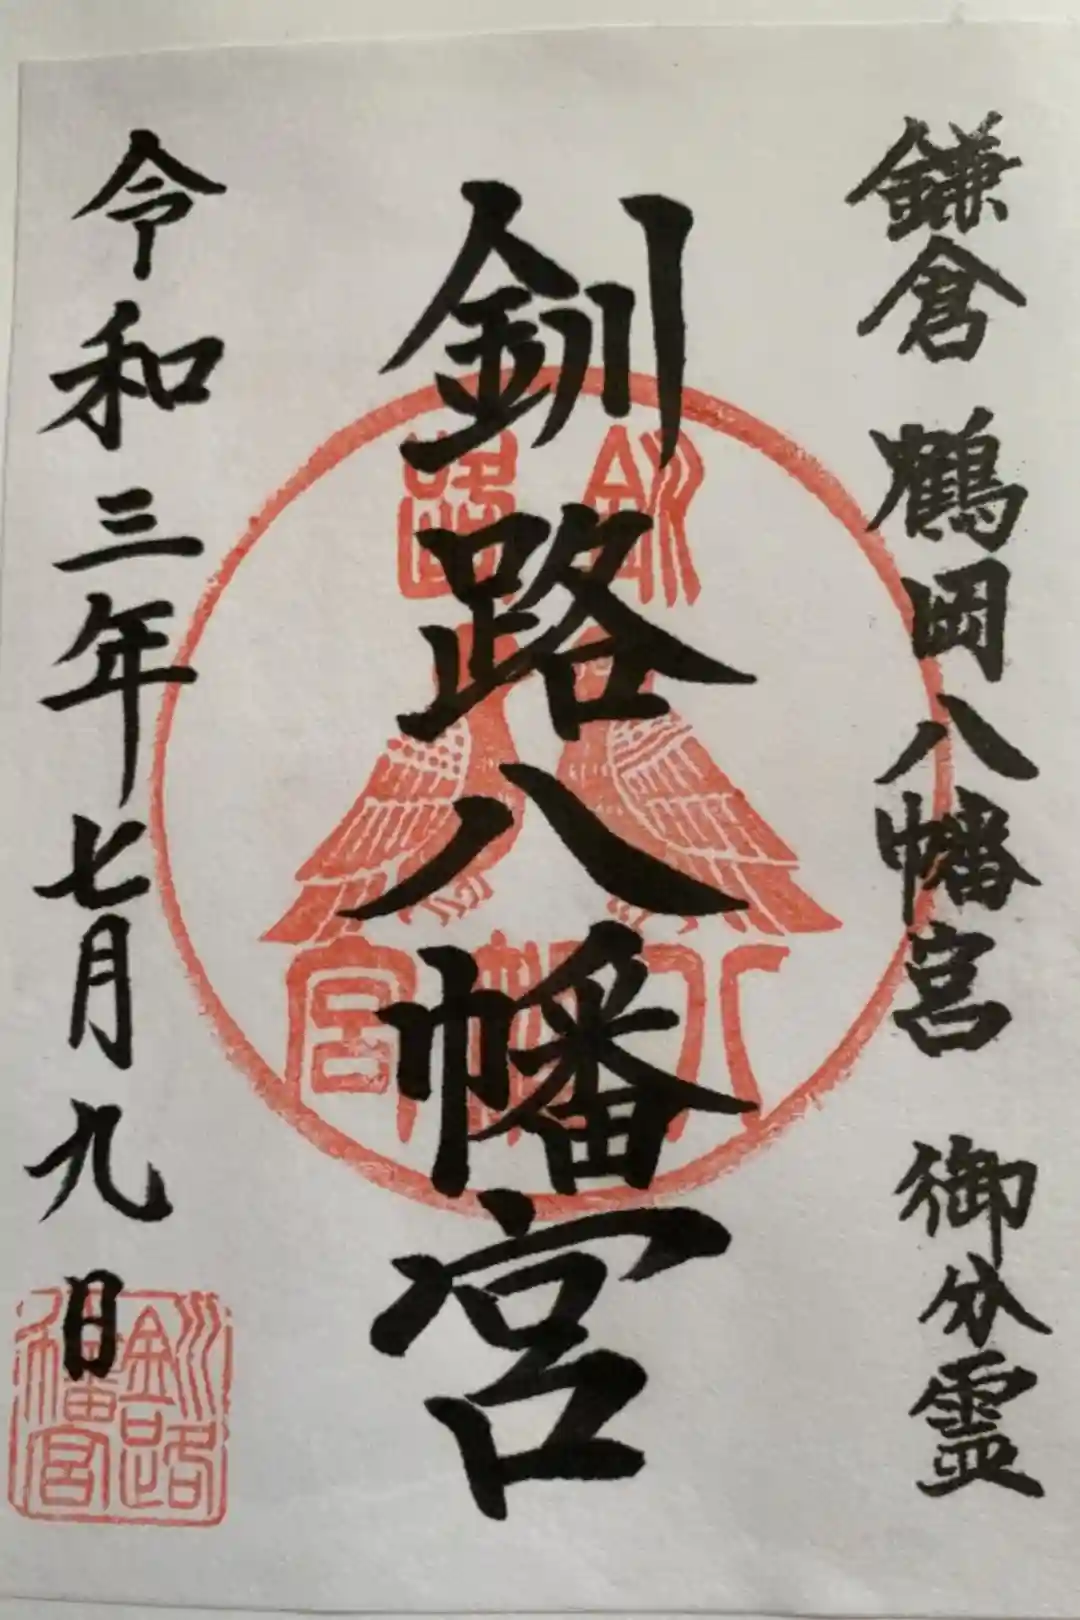 鎌倉 鶴岡八幡宮 御分霊
釧路八幡宮
令和三年七月九日
釧路
八幡宮
釧路
八幡宮